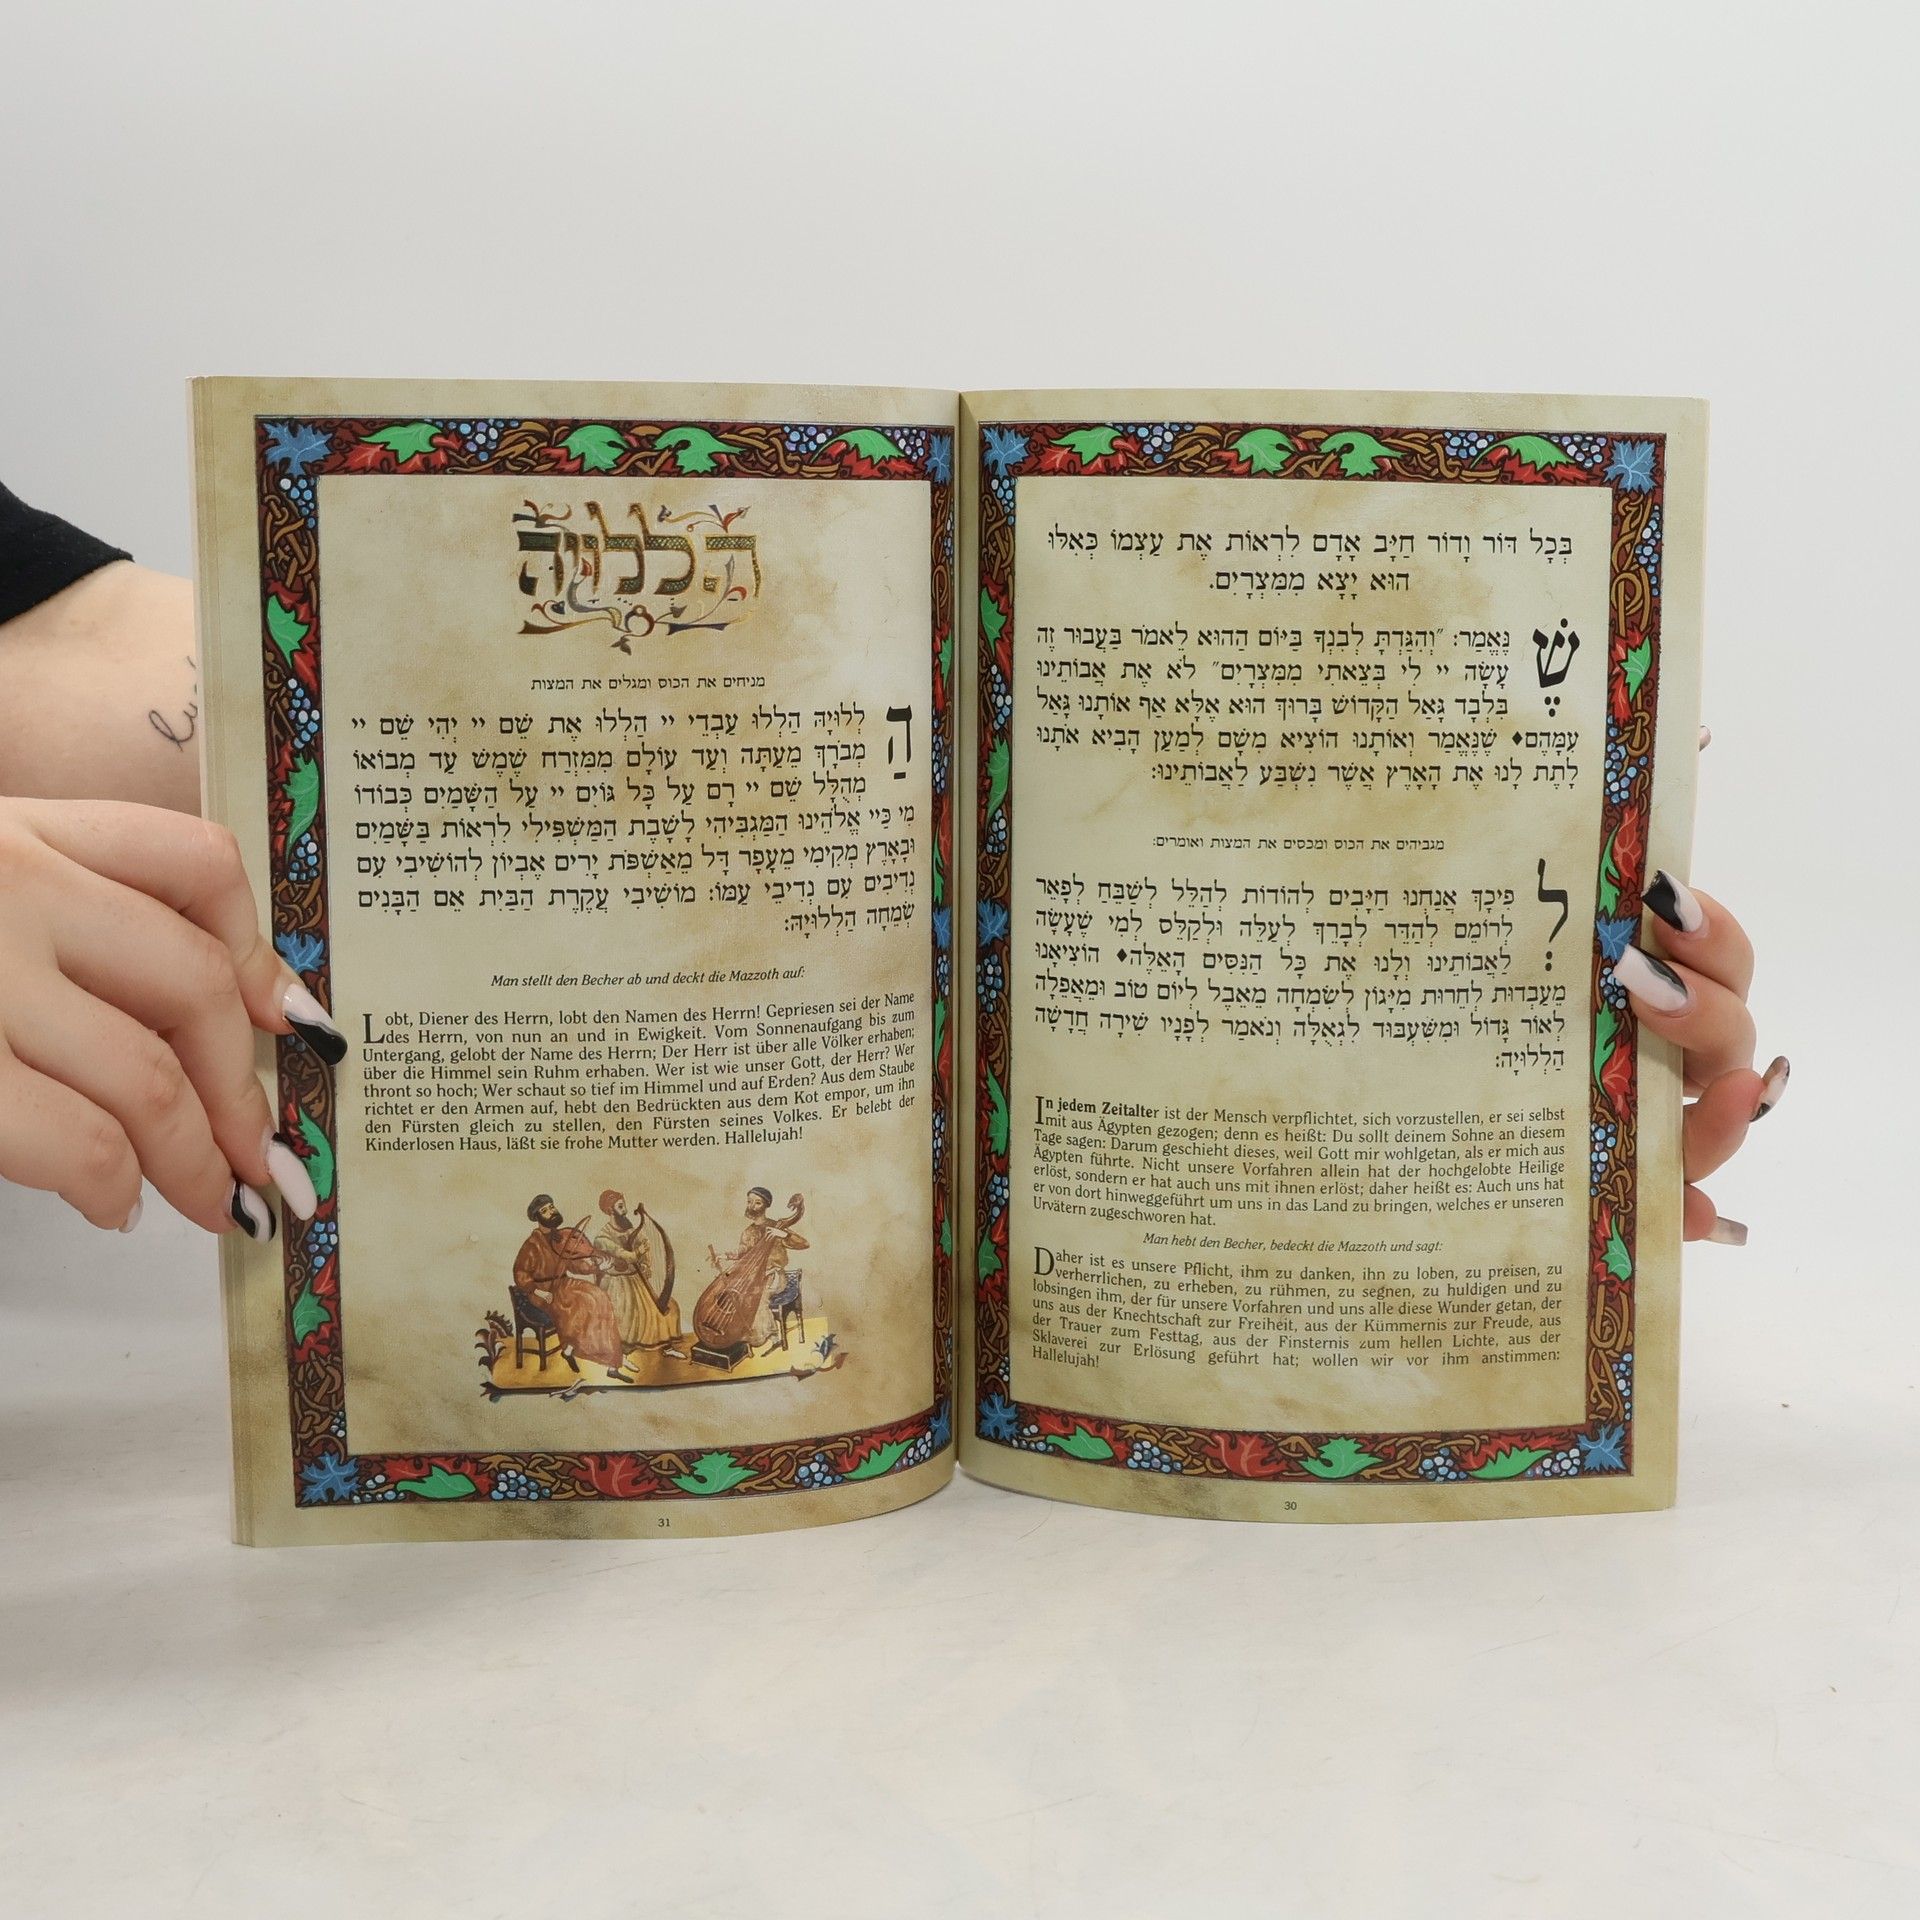 בְּכָל דּוֹר וָדוֹר חַיָּב אָדָם לִרְאוֹת אֶת עַצְמוֹ כְּאִלּוּ
הוּא יָצָא מִמִּצְרָיִם.
שֶׁנֶּאֱמַר: ״וְהִגַּדְתָּ לְבִנְךָ בַּיּוֹם הַהוּא לֵאמֹר בַּעֲבוּר זֶה
עָשָׂה יי לִי בְּצֵאתִי מִמִּצְרָיִם״ לֹא אֶת אֲבוֹתֵינוּ
בִּלְבָד גָּאַל הַקָּדוֹשׁ בָּרוּךְ הוּא אֶלָּא אַף אוֹתָנוּ גָּאַל
עִמָּהֶם♦ שֶׁנֶּאֱמַר וְאוֹתָנוּ הוֹצִיא מִשָּׁם לְמַעַן הָבִיא אֹתָנוּ
לָתֶת לָנוּ אֶת הָאָרֶץ אֲשֶׁר נִשְׁבַּע לַאֲבוֹתֵינוּ:
מגביהים את הכוס ומכסים את המצות ואומרים:
לְפִיכָךְ אֲנַחְנוּ חַיָּבִים לְהוֹדוֹת לְהַלֵּל לְשַׁבֵּחַ לְפָאֵר
לְרוֹמֵם לְהַדֵּר לְבָרֵךְ לְעַלֵּה וּלְקַלֵּס לְמִי שֶׁעָשָׂה
לַאֲבוֹתֵינוּ וְלָנוּ אֶת כָּל הַנִּסִּים הָאֵלֶּה♦ הוֹצִיאָנוּ
מֵעַבְדוּת לְחֵרוּת מִיָּגוֹן לְשִׂמְחָה מֵאֵבֶל לְיוֹם טוֹב וּמֵאֲפֵלָה
לְאוֹר גָּדוֹל וּמִשִּׁעְבּוּד לִגְאֻלָּה וְנֹאמַר לְפָנָיו שִׁירָה חֲדָשָׁה
הַלְלוּיָהּ:
In jedem Zeitalter ist der Mensch verpflichtet, sich vorzustellen, er sei selbst
mit aus Ägypten gezogen; denn es heißt: Du sollt deinem Sohne an diesem
Tage sagen: Darum geschieht dieses, weil Gott mir wohlgetan, als er mich aus
Ägypten führte. Nicht unsere Vorfahren allein hat der hochgelobte Heilige
erlöst, sondern er hat auch uns mit ihnen erlöst; daher heißt es: Auch uns hat
er von dort hinweggeführt um uns in das Land zu bringen, welches er unseren
Urvätern zugeschworen hat.
Man hebt den Becher, bedeckt die Mazzoth und sagt:
Daher ist es unsere Pflicht, ihm zu danken, ihn zu loben, zu preisen, zu
verherrlichen, zu erheben, zu rühmen, zu segnen, zu huldigen und zu
lobsingen ihm, der für unsere Vorfahren und uns alle diese Wunder getan, der
uns aus der Knechtschaft zur Freiheit, aus der Kümmernis zur Freude, aus
der Trauer zum Festtag, aus der Finsternis zum hellen Lichte, aus der
Sklaverei zur Erlösung geführt hat; wollen wir vor ihm anstimmen:
Hallelujah!
30
הללויה
מניחים את הכוס ומגלים את המצות
הַלְלוּיָהּ הַלְלוּ עַבְדֵי יי הַלְלוּ אֶת שֵׁם יי יְהִי שֵׁם יי
מְבֹרָךְ מֵעַתָּה וְעַד עוֹלָם מִמִּזְרַח שֶׁמֶשׁ עַד מְבוֹאוֹ
מְהֻלָּל שֵׁם יי רָם עַל כָּל גּוֹיִם יי עַל הַשָּׁמַיִם כְּבוֹדוֹ
מִי כַּיי אֱלֹהֵינוּ הַמַּגְבִּיהִי לָשָׁבֶת הַמַּשְׁפִּילִי לִרְאוֹת בַּשָּׁמַיִם
וּבָאָרֶץ מְקִימִי מֵעָפָר דָּל מֵאַשְׁפֹּת יָרִים אֶבְיוֹן לְהוֹשִׁיבִי עִם
נְדִיבִים עִם נְדִיבֵי עַמּוֹ: מוֹשִׁיבִי עֲקֶרֶת הַבַּיִת אֵם הַבָּנִים
שְׂמֵחָה הַלְלוּיָהּ:
Man stellt den Becher ab und deckt die Mazzoth auf:
Lobt, Diener des Herrn, lobt den Namen des Herrn! Gepriesen sei der Name
des Herrn, von nun an und in Ewigkeit. Vom Sonnenaufgang bis zum
Untergang, gelobt der Name des Herrn; Der Herr ist über alle Völker erhaben;
über die Himmel sein Ruhm erhaben. Wer ist wie unser Gott, der Herr? Wer
thront so hoch; Wer schaut so tief im Himmel und auf Erden? Aus dem Staube
richtet er den Armen auf, hebt den Bedrückten aus dem Kot empor, um ihn
den Fürsten gleich zu stellen, den Fürsten seines Volkes. Er belebt der
Kinderlosen Haus, läßt sie frohe Mutter werden. Hallelujah!
31